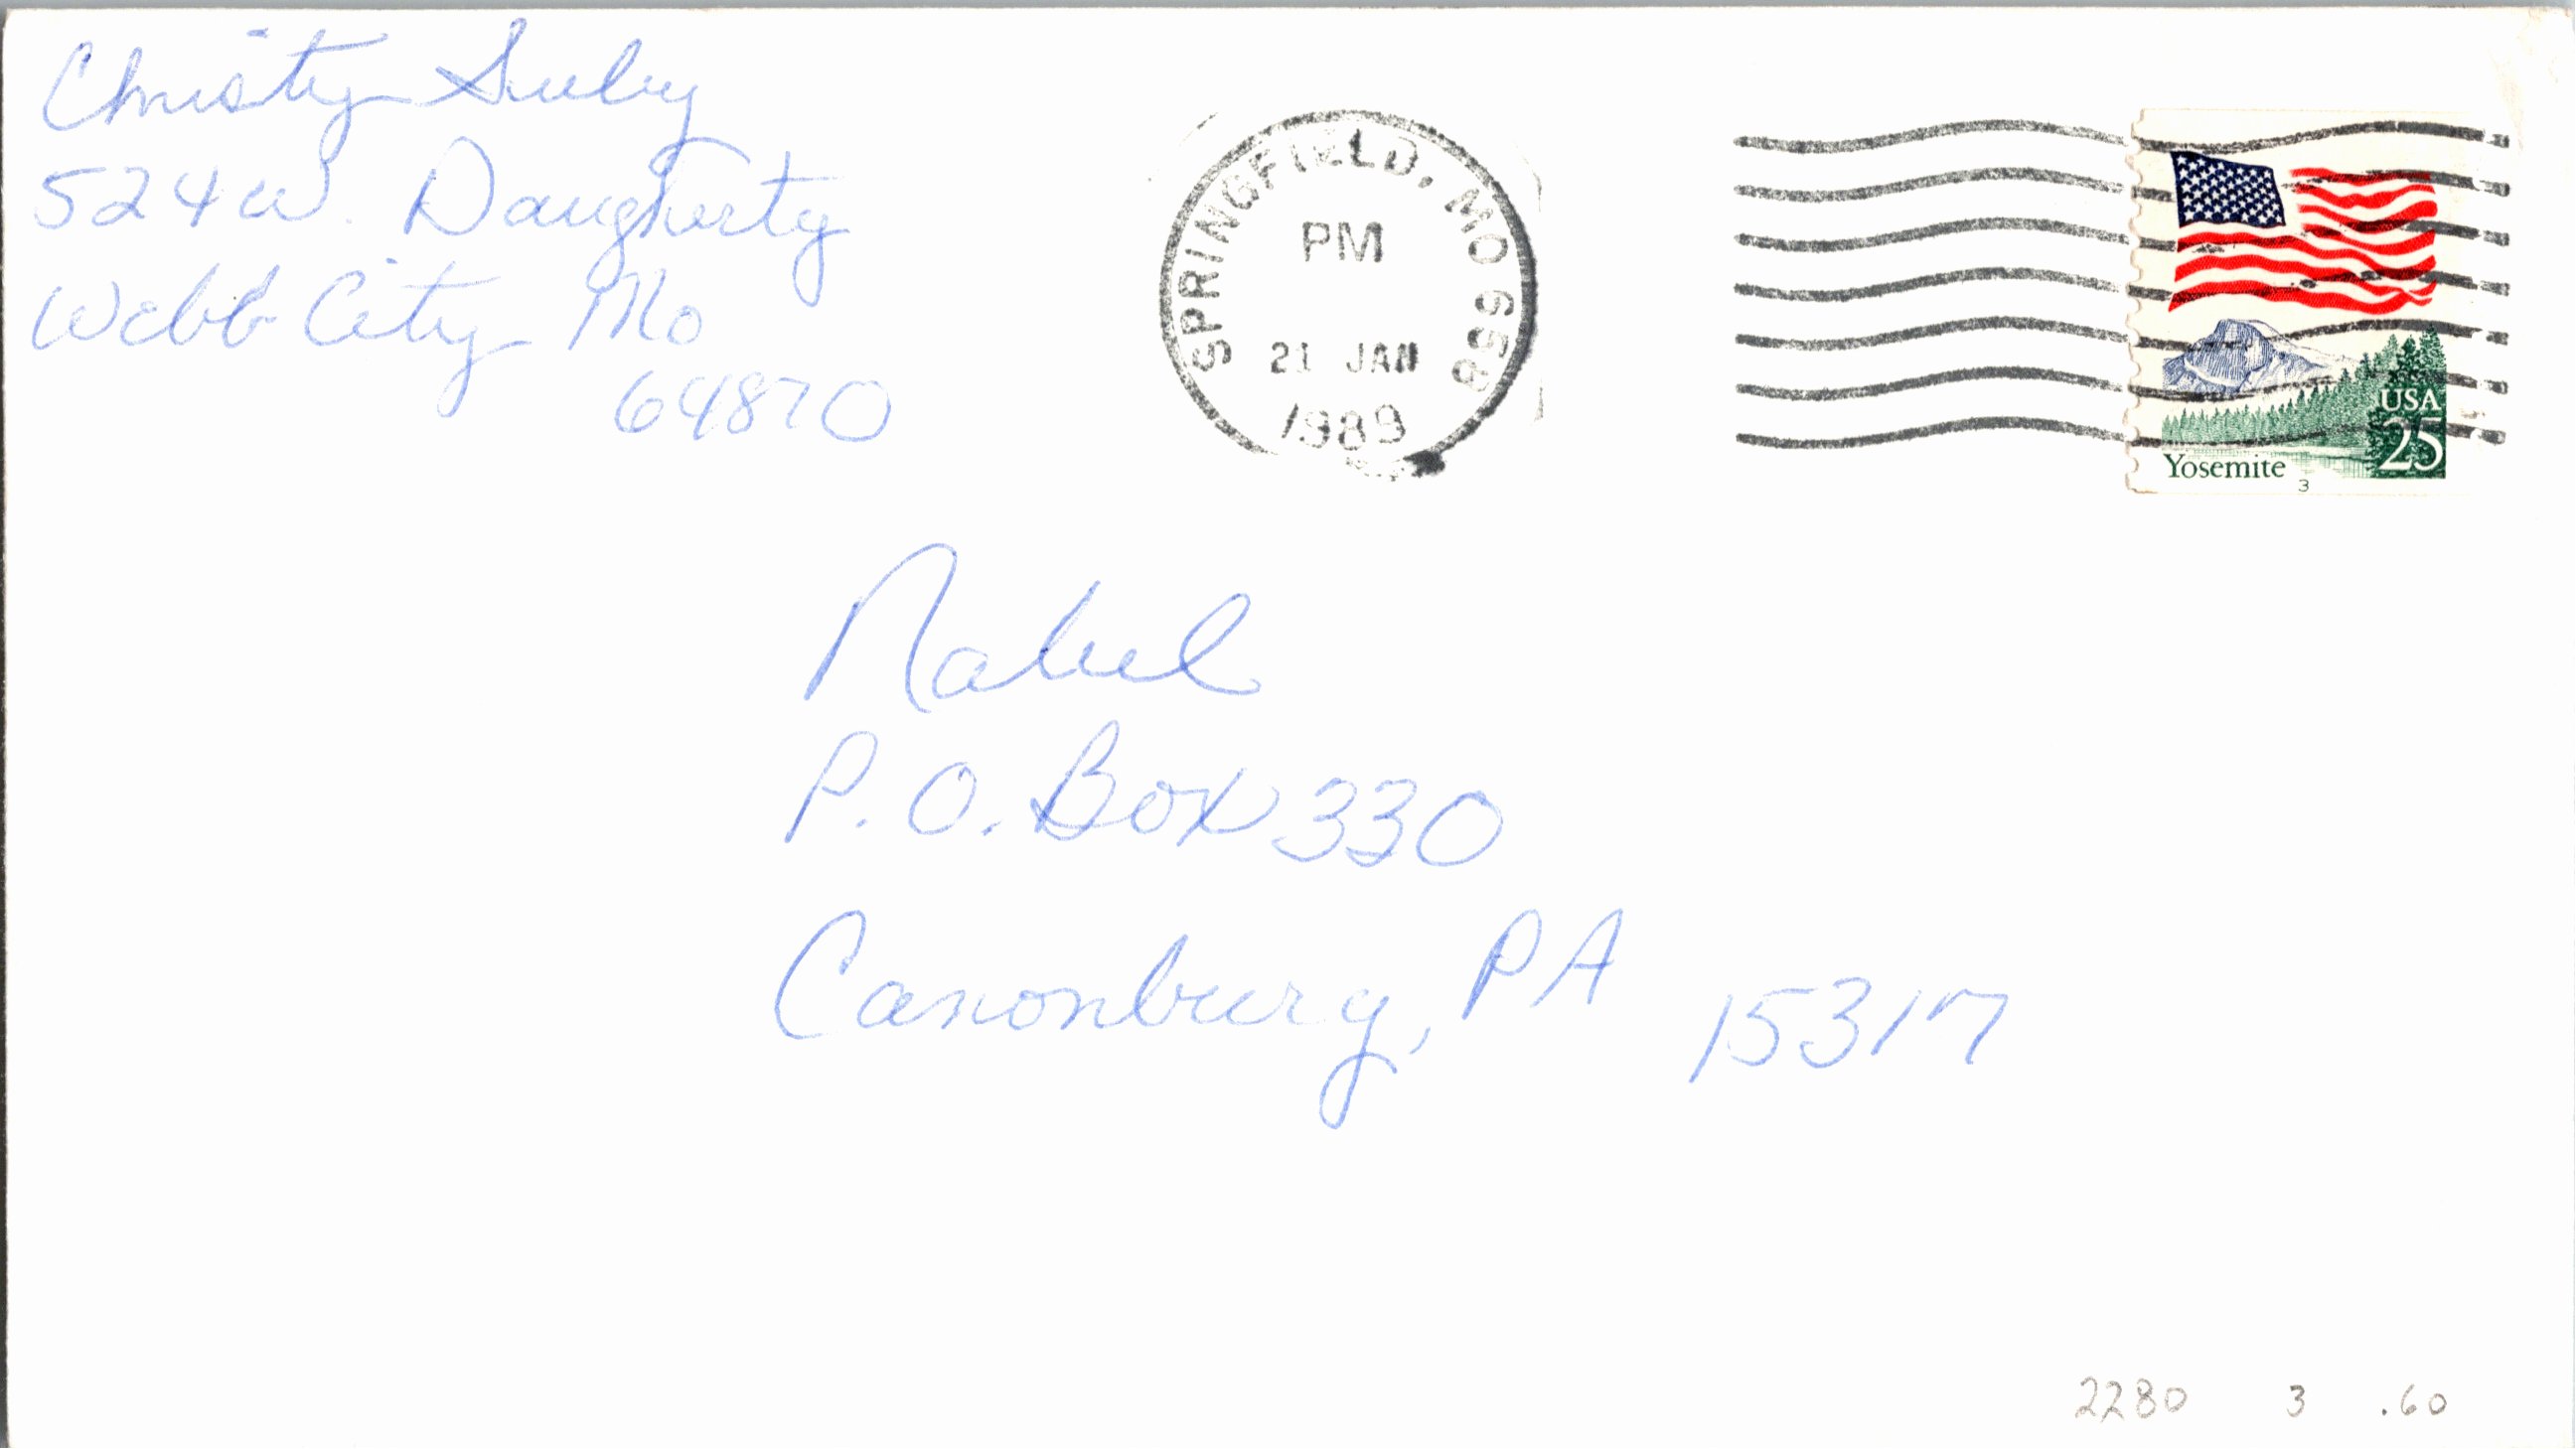 Christy
524 W. Daugherty
Webb City Mo
64870
SPRINGFIELD, MO 658
PM
21 JAN
1989
USA
25
Yosemite
3
P.O. Box 330
Canonburg, PA 15317
2280 3 .60